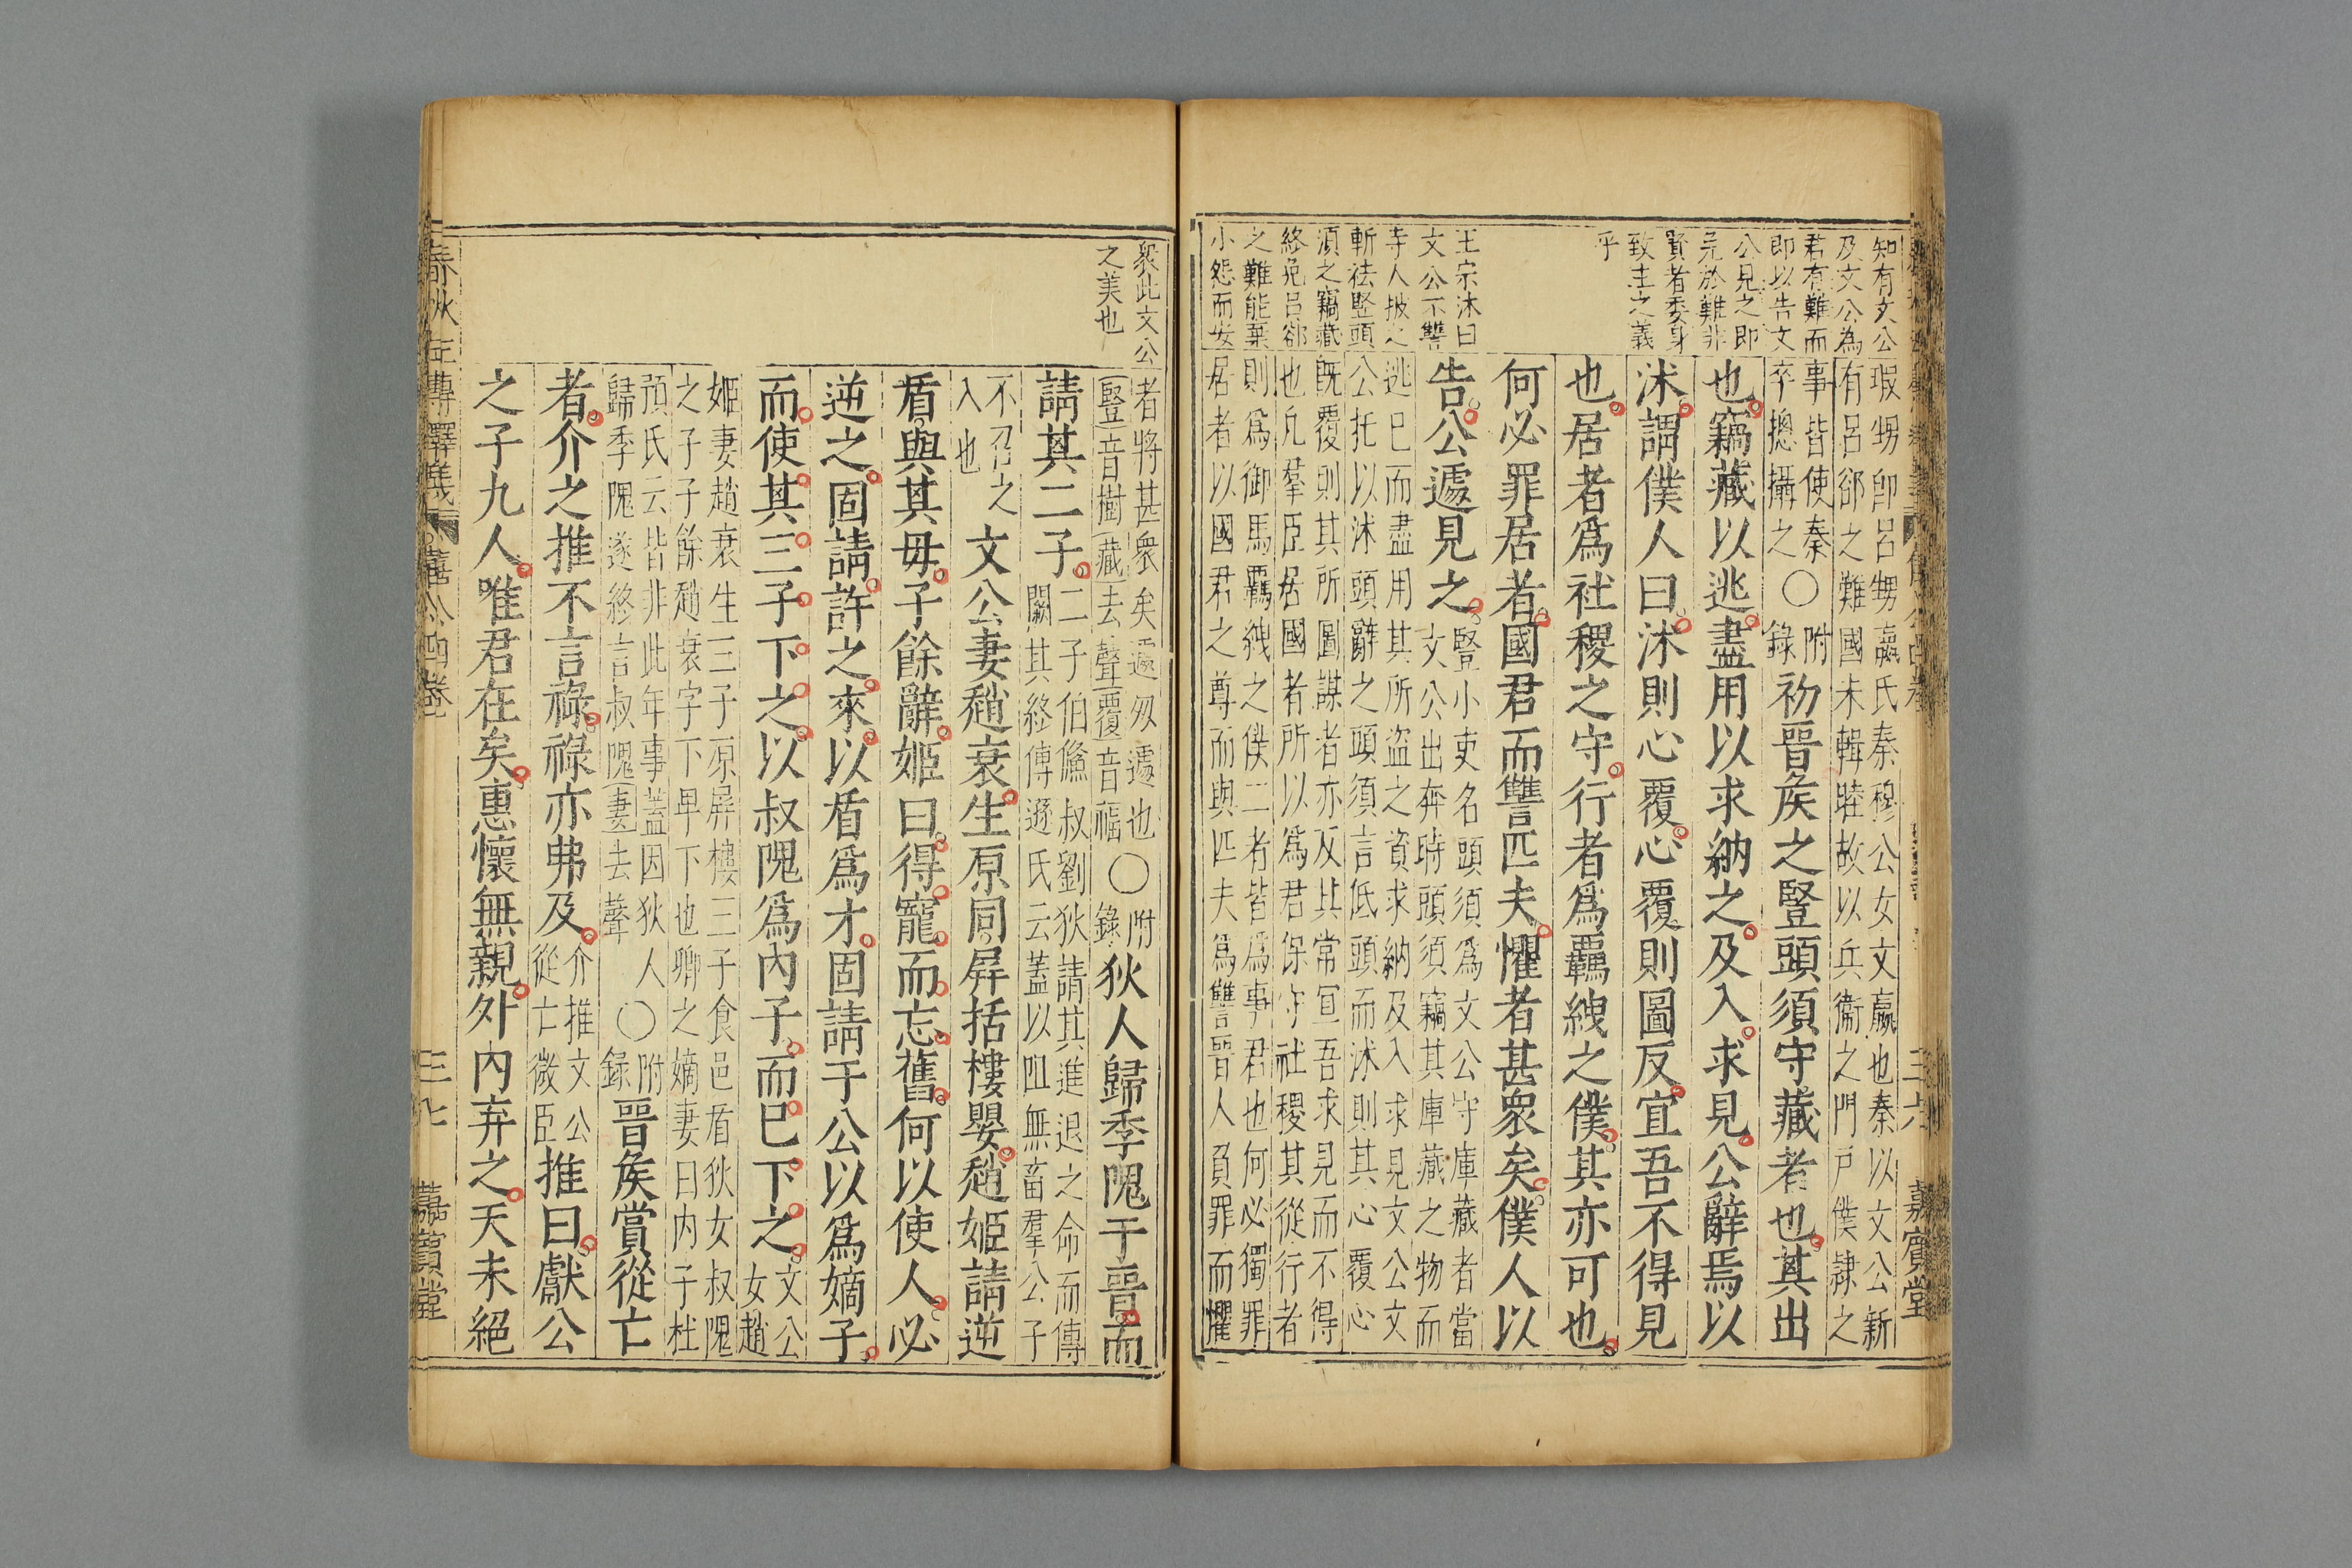 知有文公
及文公為
君有難而
即以告文
公見之即
免於難非
賢者委身
致主之義
乎
王宗沐曰
文公不讐
寺人披之
斬袪豎頭
須之竊藏
終免呂郤
之難能棄
小怨而安
瑕甥卽呂甥嬴氏秦穆公女文嬴也秦以文公新
有呂郤之難國未輯睦故以兵衞之門戸僕隷之
事皆使秦
卒摠攝之〇附
錄初晉矦之豎頭須守藏者也其出
也竊藏以逃盡用以求納之及入求見公辭焉以
沐謂僕人曰沐則心覆心覆則圖反宜吾不得見
也居者爲社稷之守行者爲羈紲之僕其亦可也
何必罪居者國君而讐匹夫懼者甚衆矣僕人以
告公遽見之豎小吏名頭須爲文公守庫藏者當
文公出奔時頭須竊其庫藏之物而
逃巳而盡用其所盜之資求納及入求見文公文
公托以沐頭辭之頭須言低頭而沐則其心覆心
旣覆則其所圖謀者亦反其常宜吾求見而不得
也凡羣臣居國者所以爲君保守社稷其從行者
則爲御馬羈紲之僕二者皆爲事君也何必獨罪
居者以國君之尊而與匹夫爲讐晉人負罪而懼
三六
嘉賓堂
衆此文公
之美也
者將甚衆矣遽匆遽也
豎音樹藏去聲覆音福〇附
錄狄人歸季隗于晉而
請其二子二子伯儵叔劉狄請其進退之命而傳
闕其終傳遜氏云蓋以呾無畜羣公子
不召之
入也文公妻趙衰生原同屛括樓嬰趙姬請逆
盾與其毋子餘辭姬曰得寵而忘舊何以使人必
逆之固請許之來以盾爲才固請于公以爲嫡子
而使其三子下之以叔隗爲內子而巳下之文公
女趙
姬妻趙衰生三子原屛樓三子食邑盾狄女叔隗
之子子餘趙衰字下卑下也卿之嫡妻曰内子杜
預氏云皆非此年事蓋因狄人
歸季隗遂終言叔隗妻去聲〇附
錄晉矦賞從亡
者介之推不言祿祿亦弗及介推文公
從亡微臣推曰獻公
之子九人唯君在矣惠懷無親外內弃之天未絕
春秋左傳釋義 僖公四卷
三七
嘉賓堂